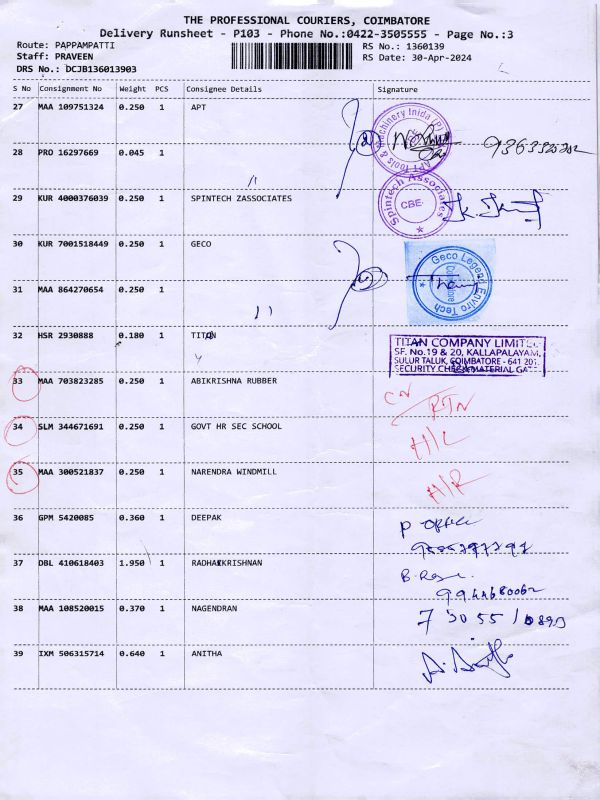 THE PROFESSIONAL COURIERS, COIMBATORE
Delivery Runsheet - P103 - Phone No.:0422-3505555 - Page No.:3
Route: PAPPAMPATTI
RS No.: 1360139
Staff: PRAVEEN
RS Date: 30-Apr-2024
DRS No.: DCJB136013903
S No Consignment No Weight PCS Consignee Details Signature
27 MAA 109751324 0.250 1 APT
28 PRO 16297669 0.045 1
29 KUR 4000376039 0.250 1 SPINTECH ZASSOCIATES
Spintech Associates
CBE.
30 KUR 7001518449 0.250 1 GECO
Geco Legend Enviro Tech
31 MAA 864270654 0.250 1
32 HSR 2930888 0.180 1 TITAN
TITAN COMPANY LIMITED
SF. No.19 & 20, KALLAPALAYAM,
SULUR TALUK, COIMBATORE - 641 201.
SECURITY CHECK MATERIAL GATE
33 MAA 703823285 0.250 1 ABIKRISHNA RUBBER
CN
RTN
34 SLM 344671691 0.250 1 GOVT HR SEC SCHOOL
H/L
35 MAA 300521837 0.250 1 NARENDRA WINDMILL
H/R
36 GPM 5420085 0.360 1 DEEPAK
P OFFICE
37 DBL 410618403 1.950 1 RADHAKRISHNAN
38 MAA 108520015 0.370 1 NAGENDRAN
39 IXM 506315714 0.640 1 ANITHA